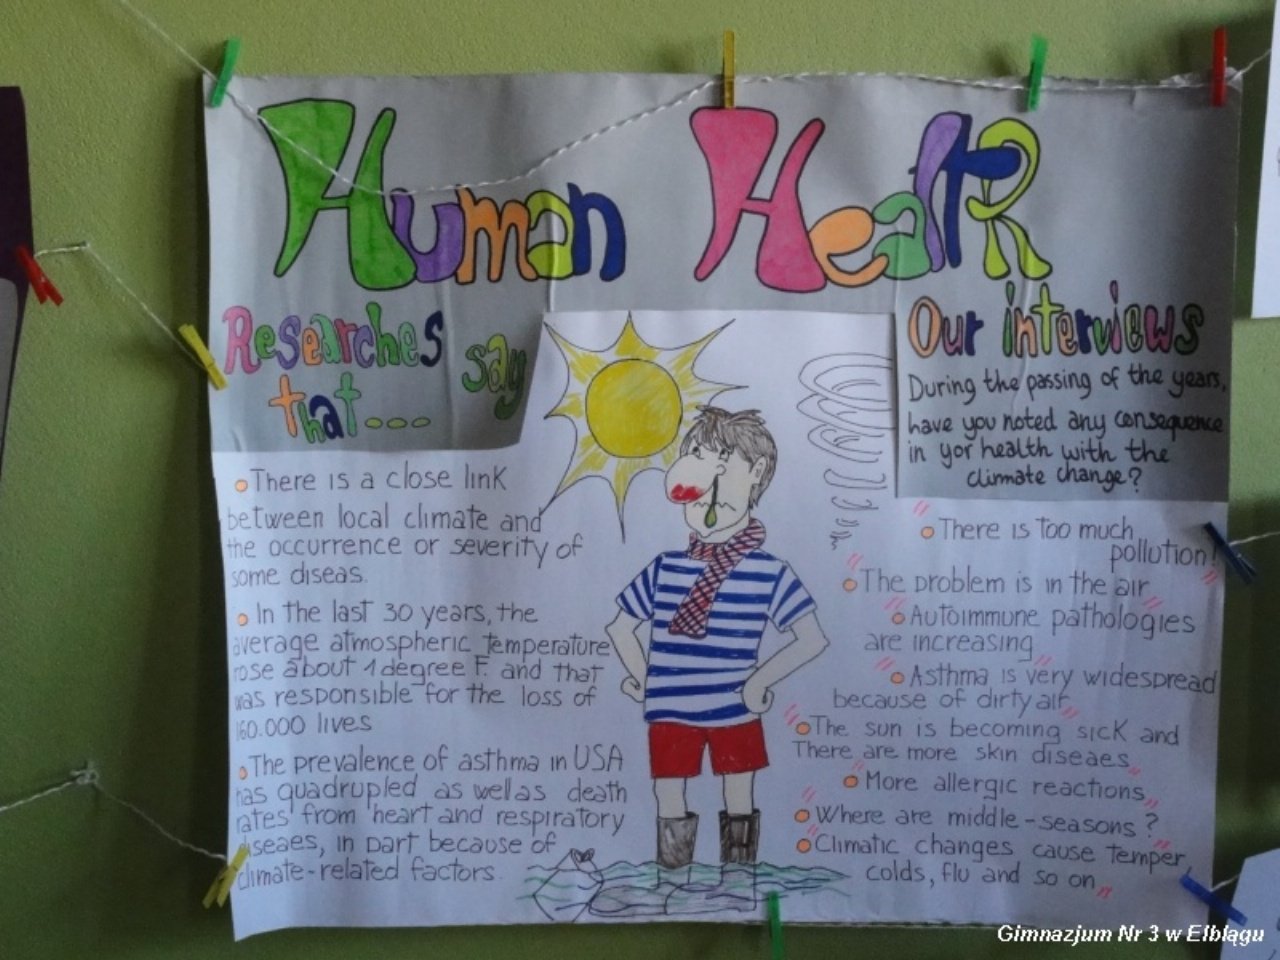 Human Health
Researches say
that....
There is a close link
between local climate and
the occurrence or severity of
some diseas.
In the last 30 years, the
average atmospheric temperature
rose about 1 degree F. and that
was responsible for the loss of
160.000 lives
The prevalence of asthma in USA
has quadrupled as well as death
rates from heart and respiratory
diseaes, in part because of
climate-related factors.
Our interviews
During the passing of the years,
have you noted any consequence
in yor health with the
climate change?
"There is too much
pollution!"
"The problem is in the air"
"Autoimmune pathologies
are increasing"
"Asthma is very widespread
because of dirty air"
"The sun is becoming sick and
There are more skin diseaes"
"More allergic reactions"
"Where are middle-seasons?"
"Climatic changes cause temper,
colds, flu and so on"
Gimnazjum Nr 3 w Elblągu